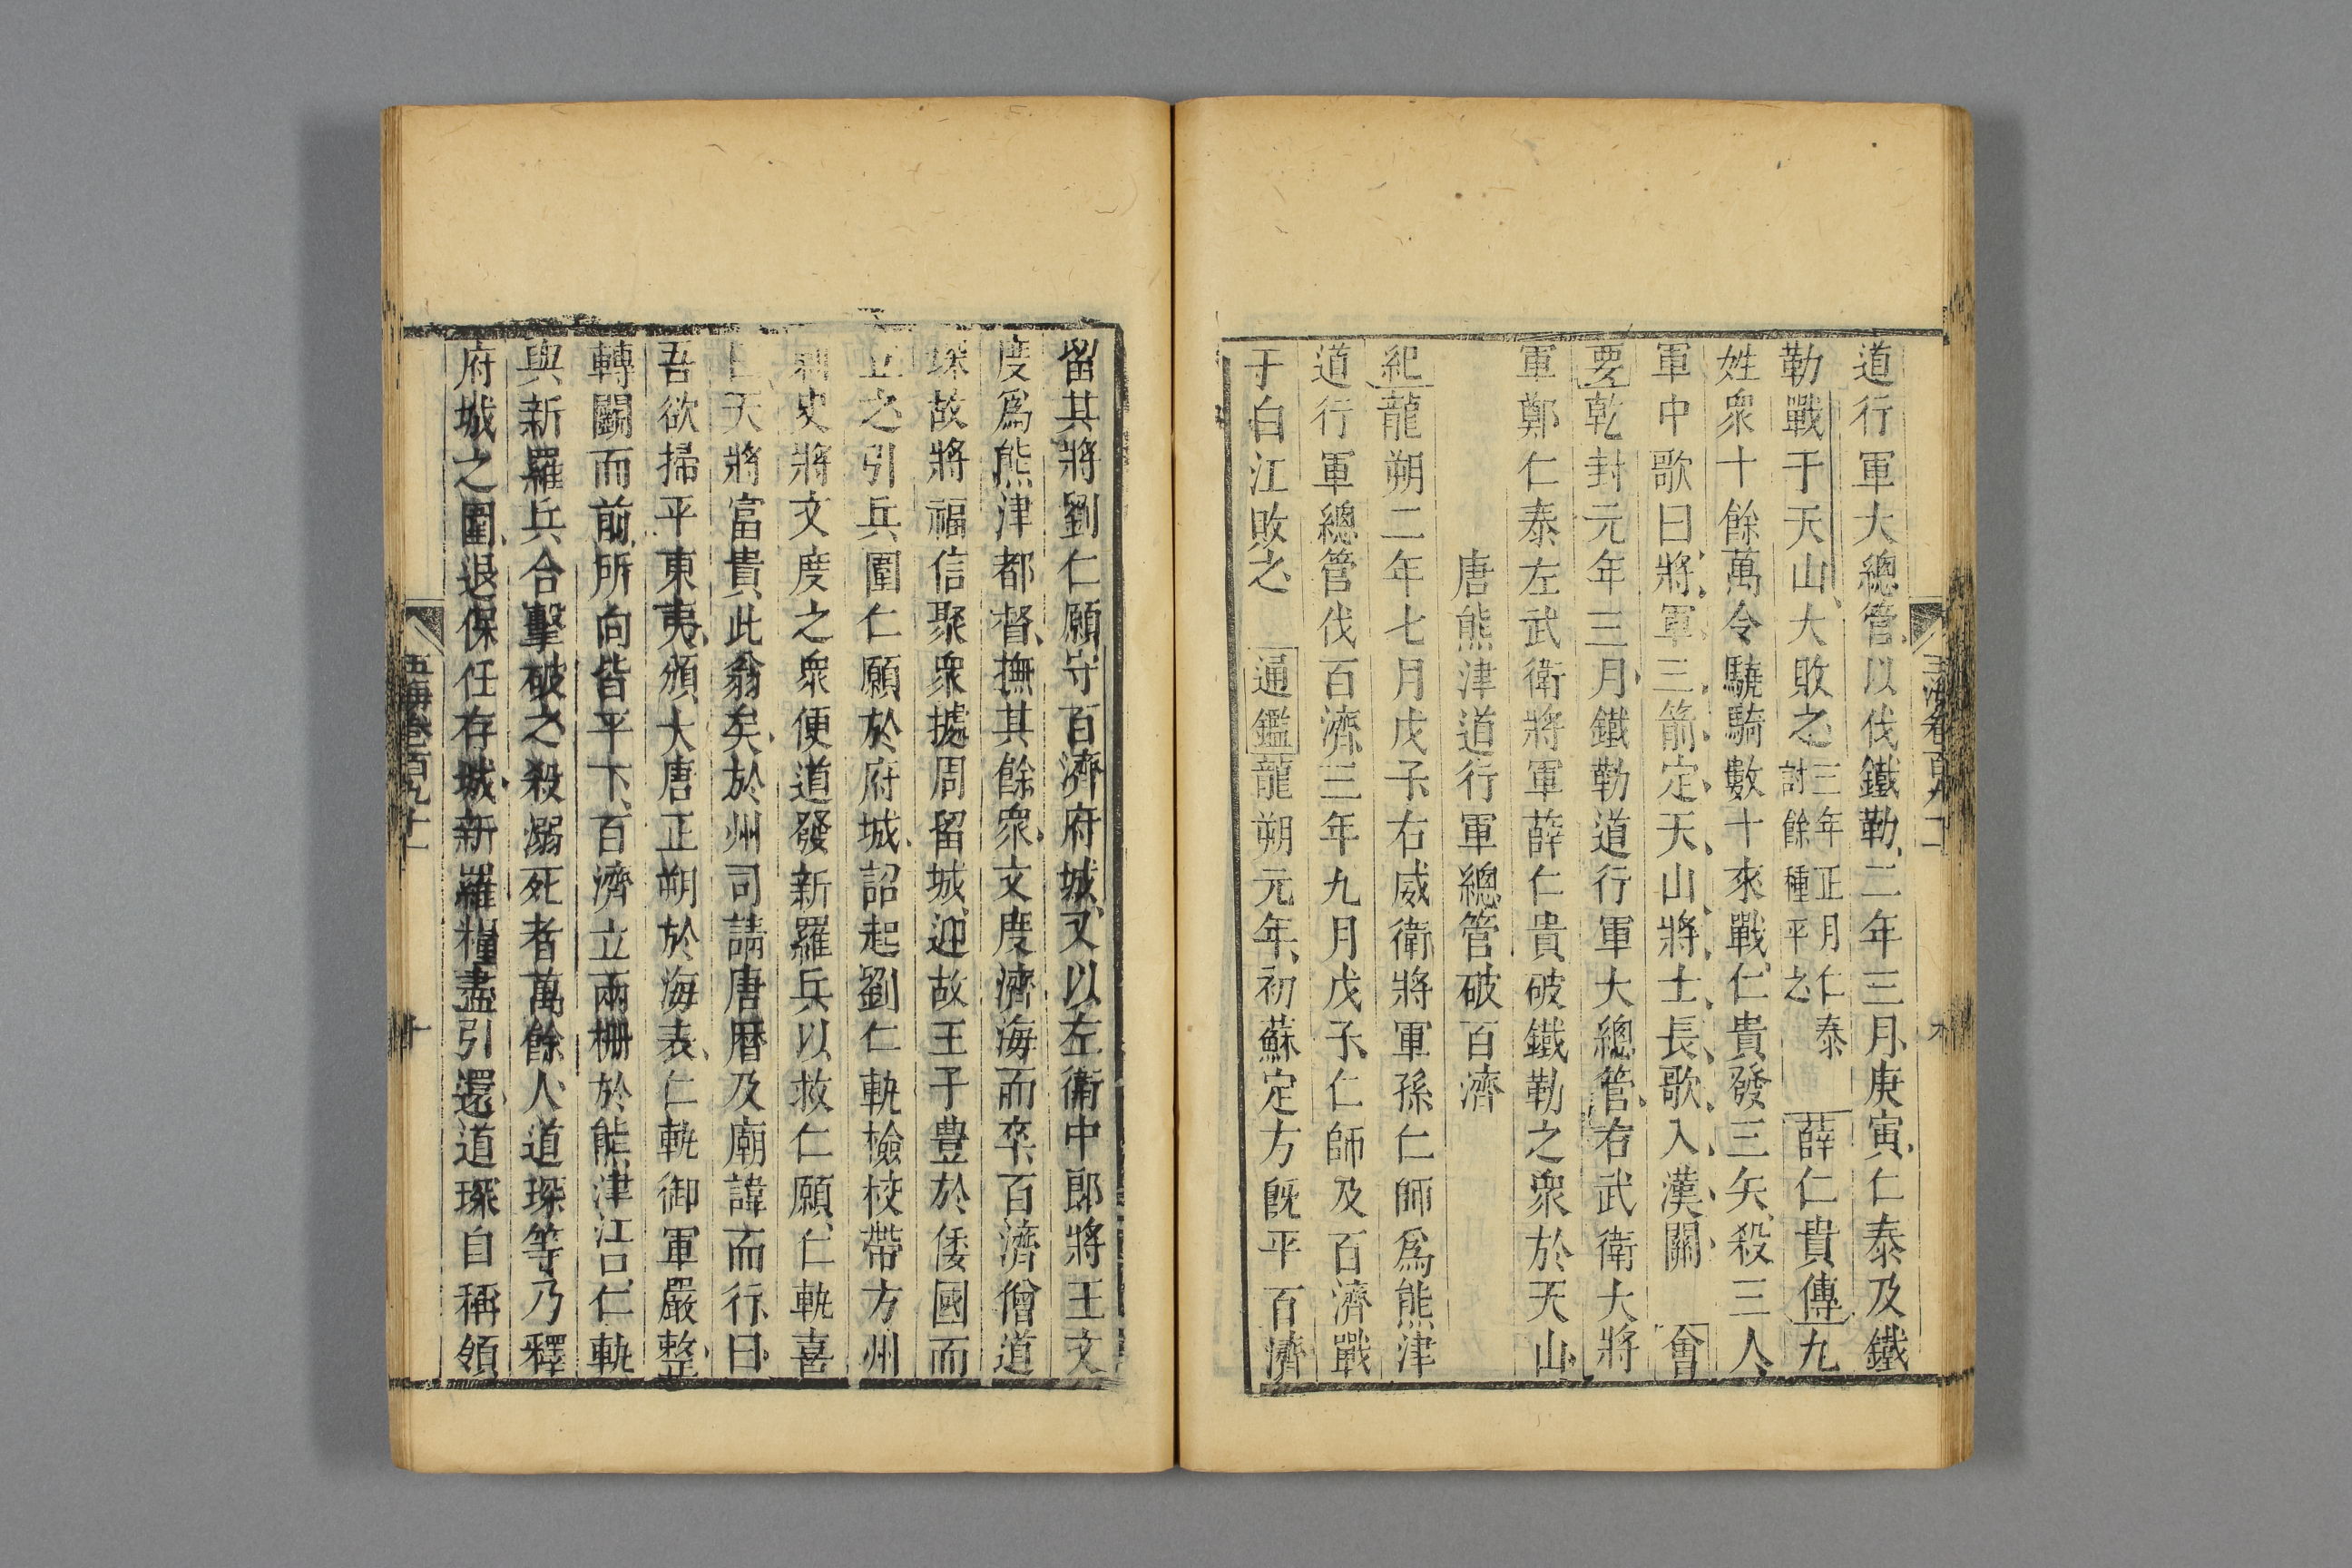 道行軍大總管以伐鐵勒二年三月庚寅仁泰及鐵
勒戰于天山大敗之三年正月仁泰討餘種平之 薛仁貴傳九
姓衆十餘萬令驍騎數十來戰仁貴發三矢殺三人
軍中歌曰將軍三箭定天山將士長歌入漢關 會
要乾封元年三月鐵勒道行軍大總管右武衛大將
軍鄭仁泰左武衛將軍薛仁貴破鐵勒之衆於天山
唐熊津道行軍總管破百濟
紀龍朔二年七月戊子右威衛將軍孫仁師爲熊津
道行軍總管伐百濟三年九月戊子仁師及百濟戰
于白江敗之 通鑑龍朔元年初蘇定方既平百濟
留其將劉仁願守百濟府城又以左衛中郎將王文
度爲熊津都督撫其餘衆文度濟海而卒百濟僧道
琛故將福信聚衆據周留城迎故王子豊於倭國而
立之引兵圍仁願於府城詔起劉仁軌檢校帶方州
刺史將文度之衆便道發新羅兵以救仁願仁軌喜
曰天將富貴此翁矣於州司請唐曆及廟諱而行曰
吾欲掃平東夷頒大唐正朔於海表仁軌御軍嚴整
轉鬬而前所向皆平下百濟立兩柵於熊津江口仁軌
與新羅兵合擊破之殺溺死者萬餘人道琛等乃釋
府城之圍退保任存城新羅糧盡引還道琛自稱領
玉海卷百九十一
十